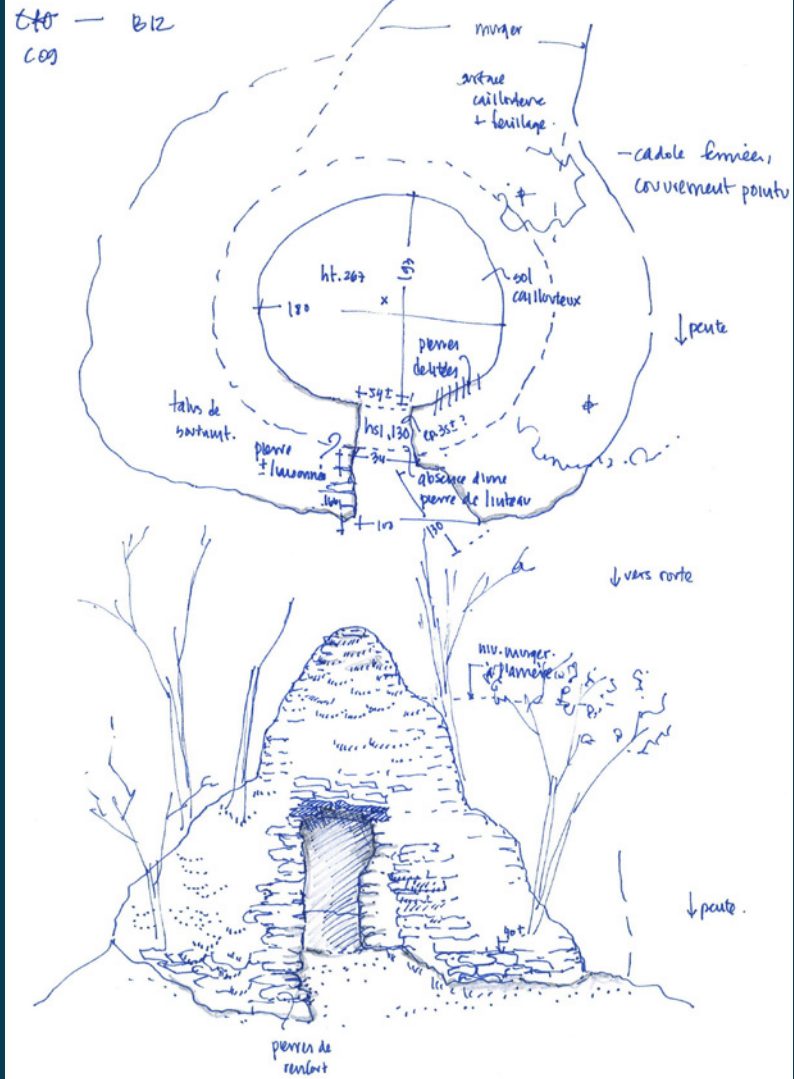 B12
C09
murger
surface
caillouteuse
+ feuillage.
- cadole fermée,
couvrement pointu
ht. 267
197
sol
caillouteux
180
↓ pente
pierres
délitées
54±
talus de
hsl. 130
ep. 35± ?
pierre
absence d'une
pierre de linteau
130
↓ vers
niv. murger
à l'arrière
↓ pente.
40±
pierres de
renfort